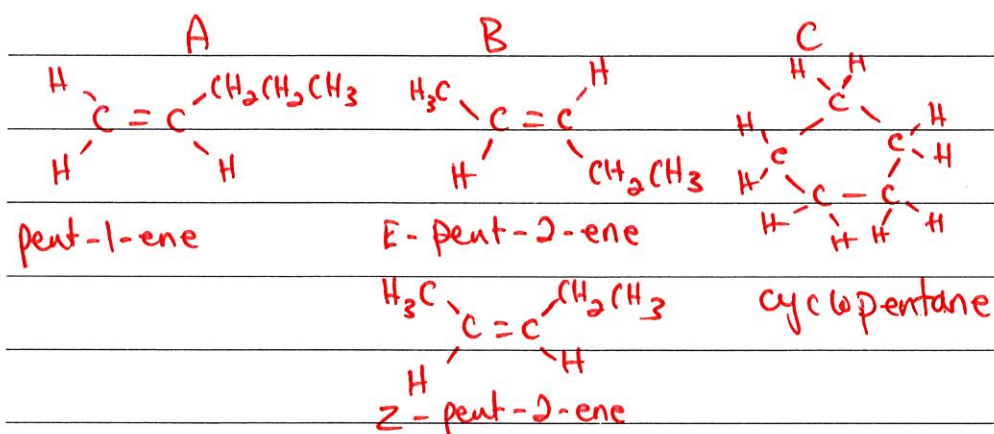 A B C
H CH₂CH₂CH₃
C = C
H H
pent-1-ene
H₃C H
C = C
H CH₂CH₃
E- pent-2-ene
H₃C CH₂CH₃
C = C
H H
Z- pent-2-ene
H H
C
H C C H
H H
C - C
H H H H
cyclopentane